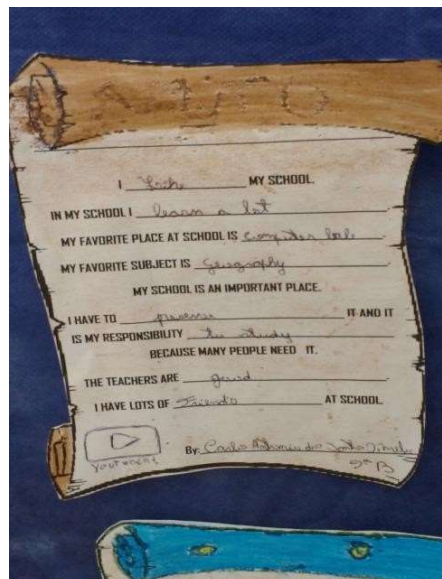 I Like MY SCHOOL.
IN MY SCHOOL I learn a lot
MY FAVORITE PLACE AT SCHOOL IS computer lab.
MY FAVORITE SUBJECT IS Geography
MY SCHOOL IS AN IMPORTANT PLACE.
I HAVE TO preserve IT AND IT
IS MY RESPONSIBILITY the study
BECAUSE MANY PEOPLE NEED IT.
THE TEACHERS ARE good
I HAVE LOTS OF AT SCHOOL.
By: Carlos Antonio dos
9º B